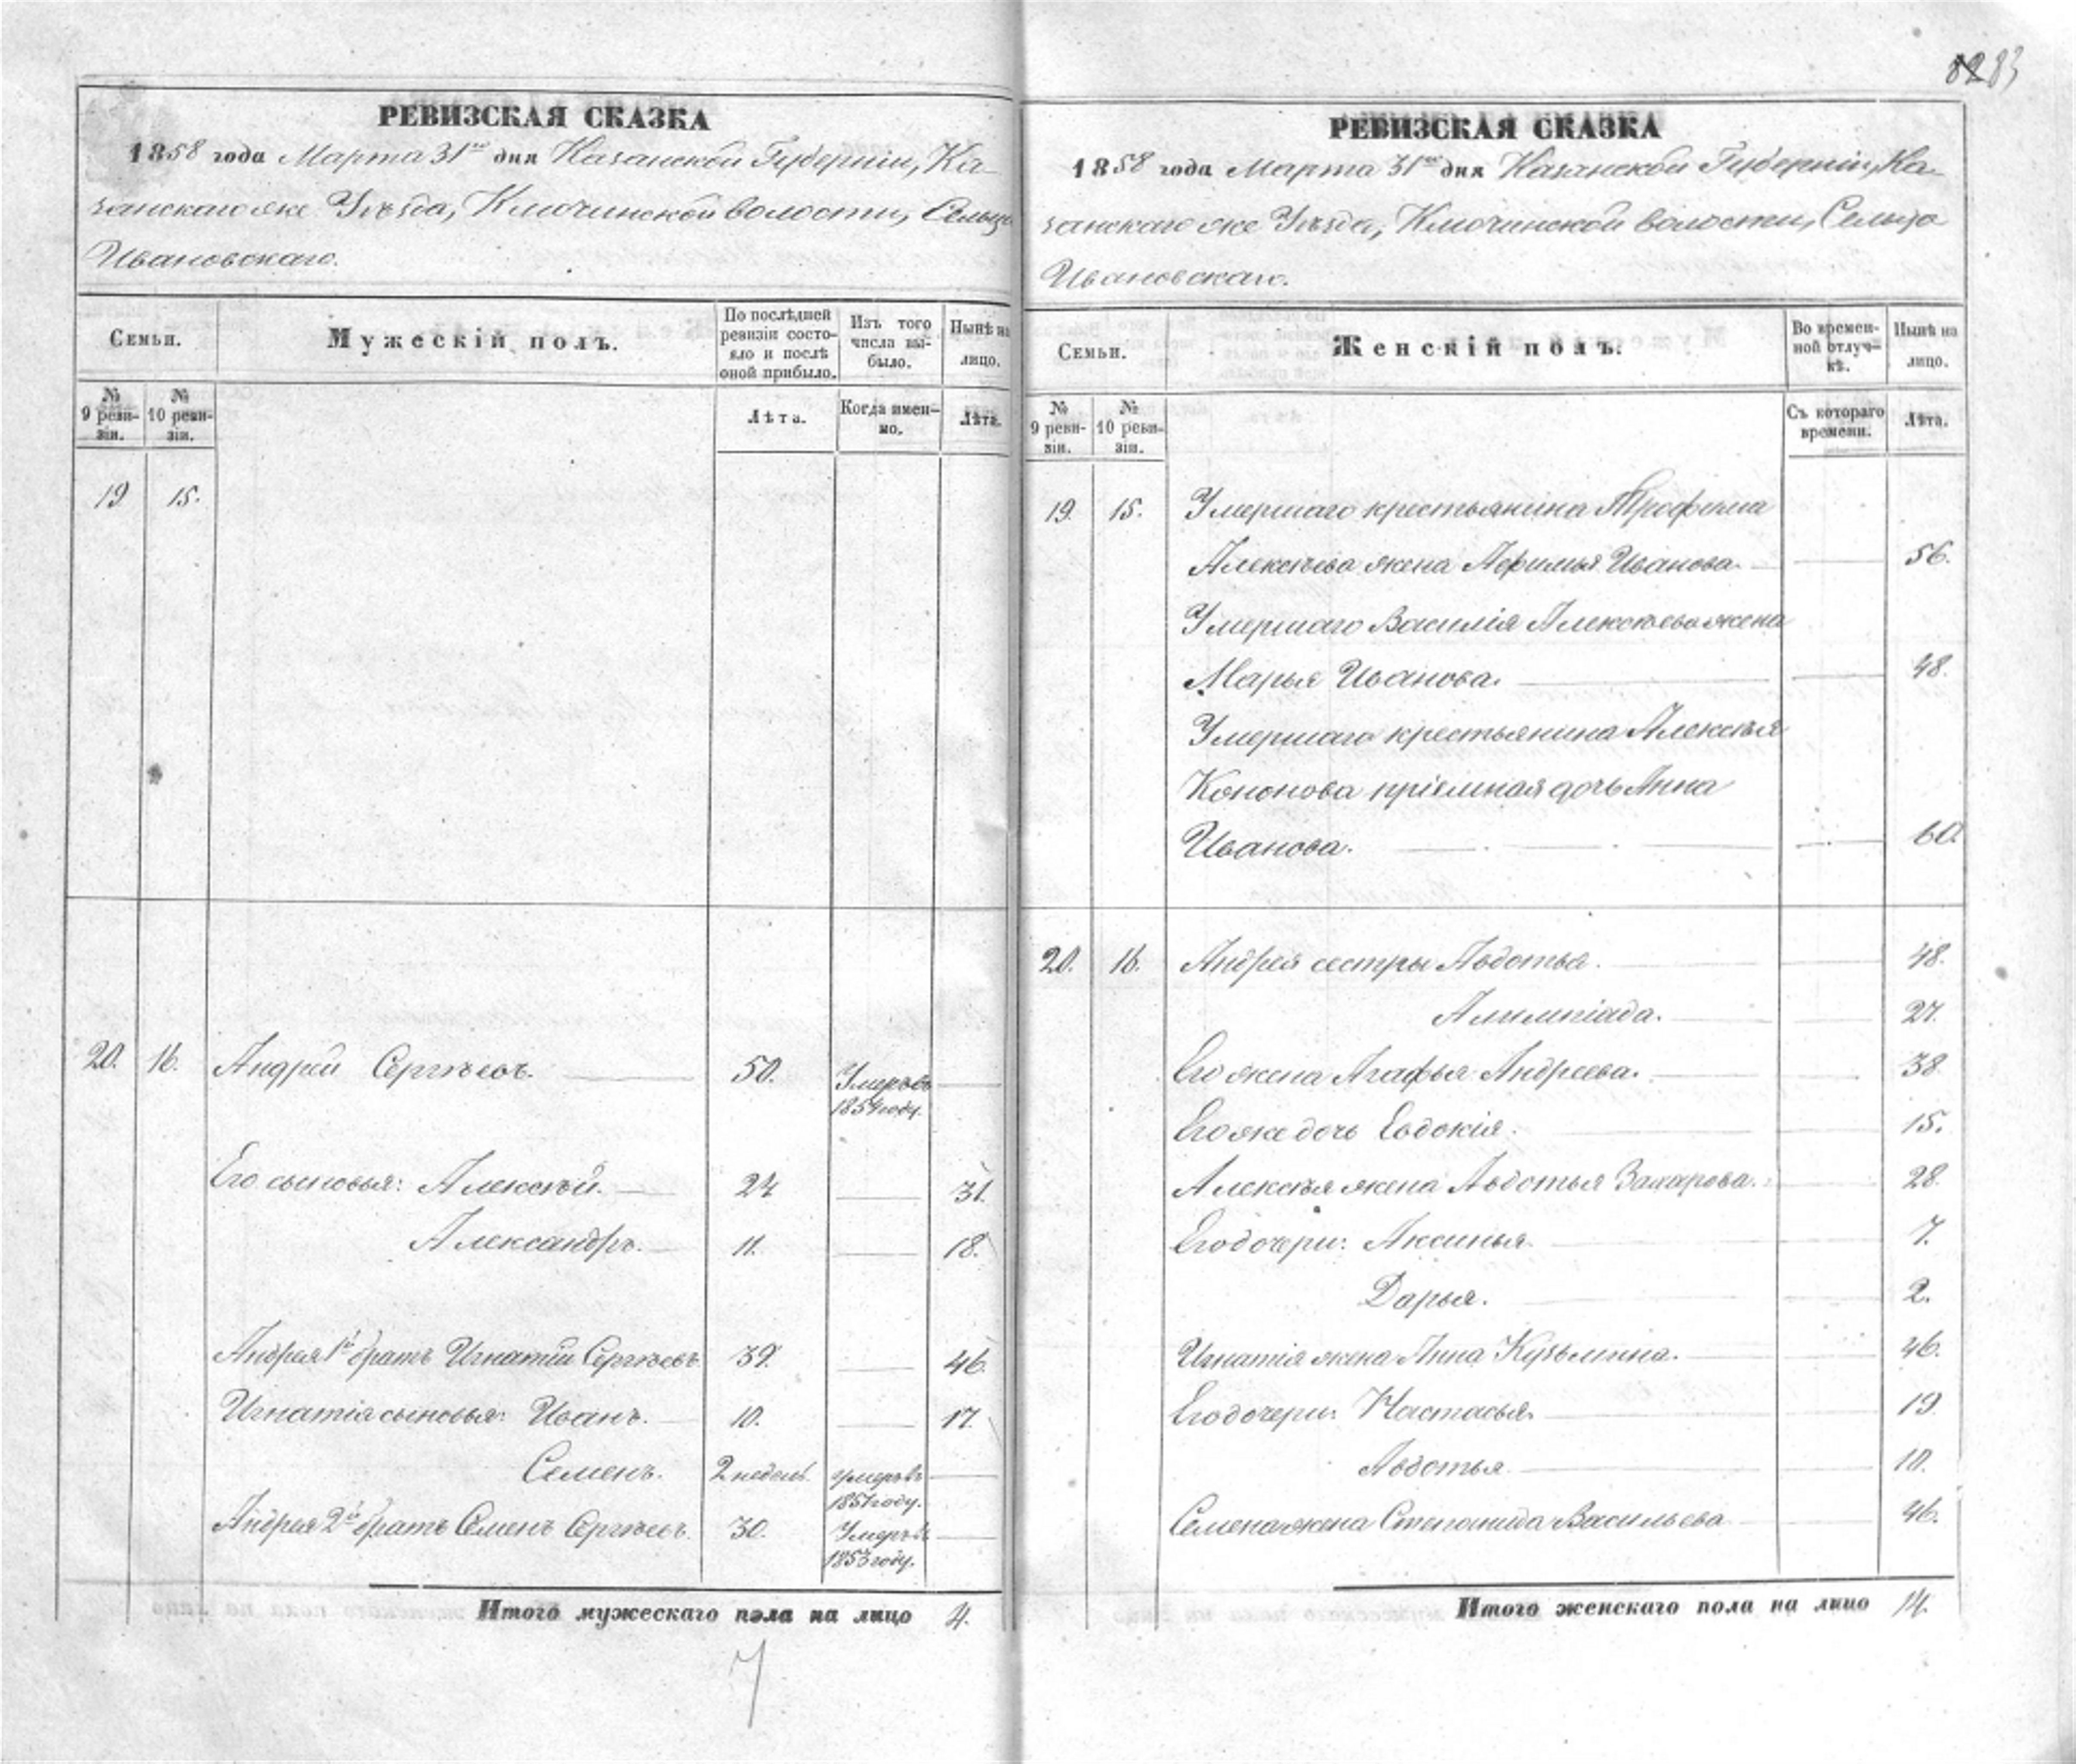 82 83
РЕВИЗСКАЯ СКАЗКА
1858 года Марта 31го дня Казанской Губерніи, Ка-
занскаго же Уѣзда, Ключинской волости, Сельца
Ивановскаго.
Семьи.
Мужескій полъ.
По послѣдней ревизіи состояло и послѣ оной прибыло.
Изъ того числа выбыло.
Нынѣ на лицо.
№ 9 ревизіи.
№ 10 ревизіи.
Лѣта.
Когда именно.
Лѣта.
19 15.
20. 16. Андрей Сергѣевъ. 50. Умеръ въ
1854 году.
Его сыновья: Алексѣй. 24 31.
Александръ. 11. 18.
Андрея 1й братъ Игнатій Сергѣевъ 39. 46.
Игнатія сыновья: Иванъ. 10. 17.
Семенъ. 2 недель. умеръ въ
1851 году.
Андрея 2й братъ Семенъ Сергѣевъ. 30. Умеръ въ
1853 году.
Итого мужескаго пола на лицо 4.
7
РЕВИЗСКАЯ СКАЗКА
1858 года Марта 31го дня Казанской Губерніи, Ка-
занскаго же Уѣзда, Ключинской волости, Сельца
Ивановскаго.
Семьи.
Женскій полъ.
Во временной отлучкѣ.
Нынѣ на лицо.
№ 9 ревизіи.
№ 10 ревизіи.
Съ котораго времени.
Лѣта.
19. 15. Умершаго крестьянина Трофима
Алексѣева жена Афимья Иванова. 56.
Умершаго Василія Алексѣева жена
Марья Иванова. 48.
Умершаго крестьянина Алексѣя
Кононова пріемная дочь Анна
Иванова. 60.
20. 16. Андрея сестры Авдотья. 48.
Алимпіада. 27.
Его жена Агафья Андреева. 38
Его же дочь Евдокія. 15.
Алексѣя жена Авдотья Захарова. 28.
Его дочери: Аксинья 7.
Дарья. 2.
Игнатія жена Анна Кузьмина. 46.
Его дочери: Настасья 19.
Авдотья 10.
Семена жена Степанида Васильева 46.
Итого женскаго пола на лицо 14.